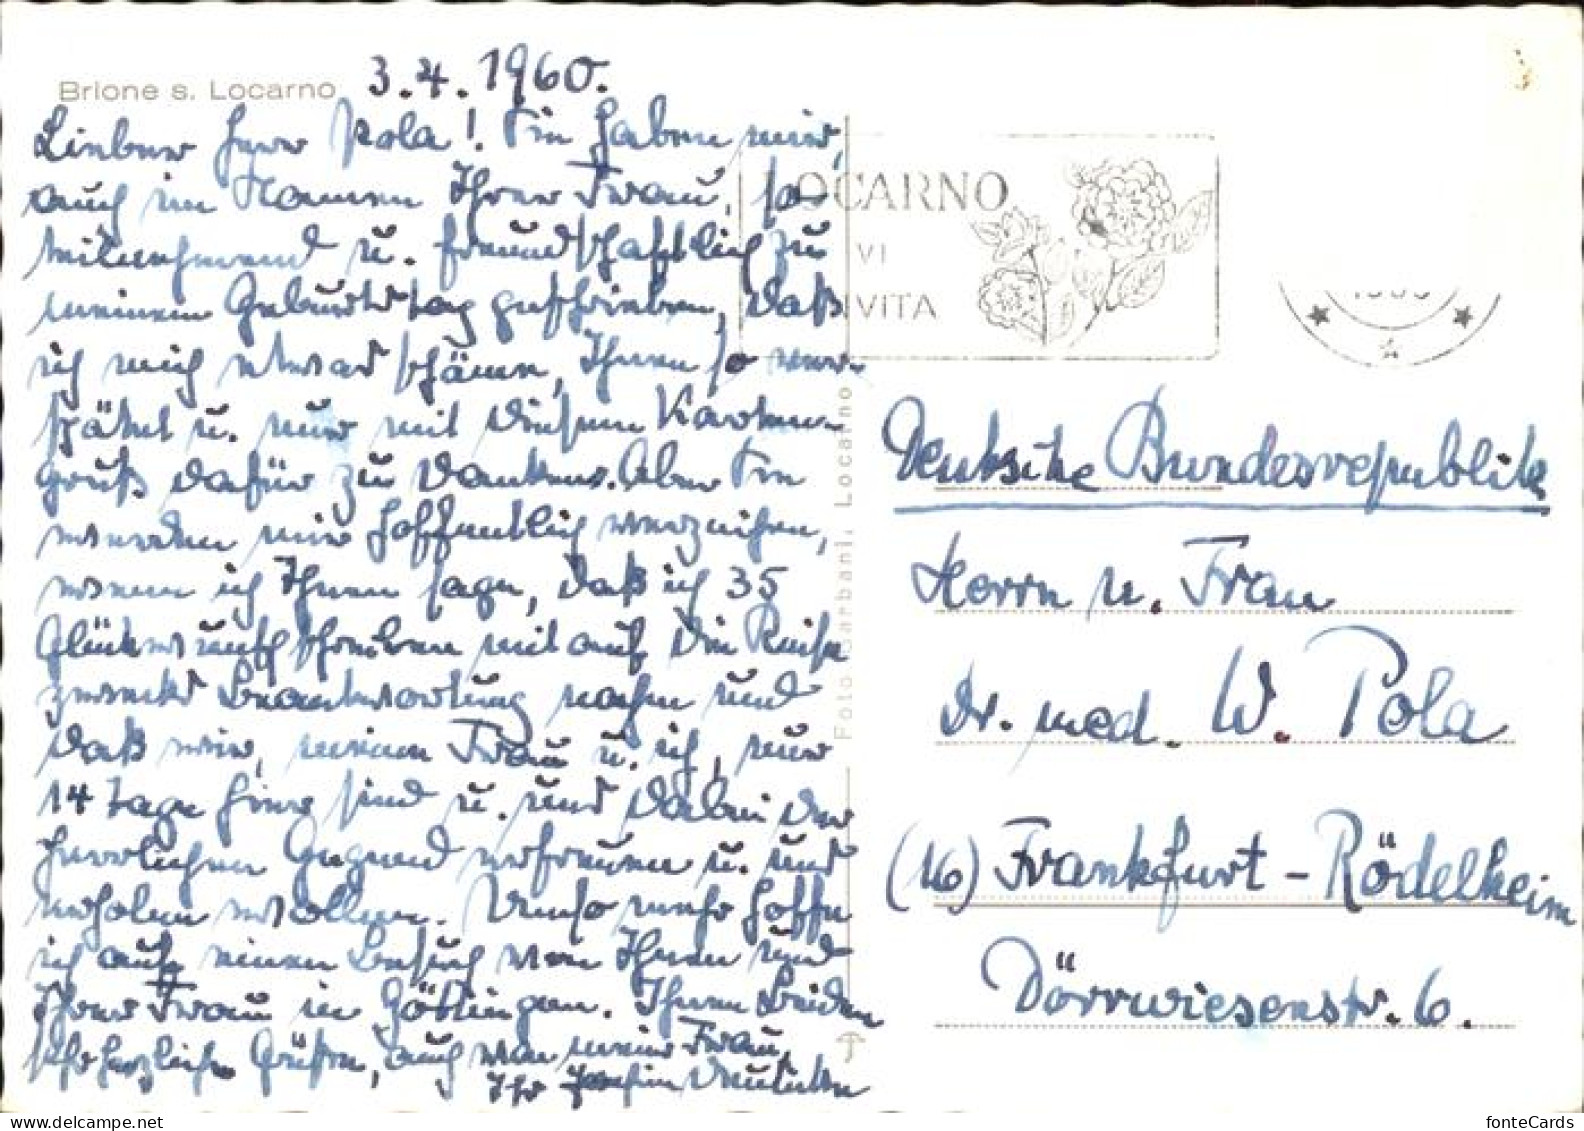 Brione s. Locarno
3.4.1960.
Lieber Herr Pola! Sie haben mir,
auch im Namen Ihrer Frau, so
teilnehmend u. freundschaftlich zu
meinem Geburtstag geschrieben, daß
ich mich etwas schäme, Ihnen so ver-
spätet u. nur mit diesem Karten-
gruß dafür zu danken. Aber Sie
werden mir hoffentlich verzeihen,
wenn ich Ihnen sage, daß ich 35
Glückwunschschreiben mit auf die Reise
zwecks Beantwortung nahm und
daß wir, meine Frau u. ich, nur
14 Tage hier sind u. uns dabei der
herrlichen Gegend erfreuen u. uns
erholen wollen. Umso mehr hoffe
ich auf einen Besuch von Ihnen und
Ihrer Frau in Göttingen. Ihnen beiden
sehr herzliche Grüße, auch von meiner Frau,
Ihr
LOCARNO
VI
INVITA
Foto Garbani, Locarno
Deutsche Bundesrepublik
Herrn u. Frau
Dr. med. W. Pola
(16) Frankfurt - Rödelheim
Dörrwiesenstr. 6.
fonteCards
www.delcampe.net